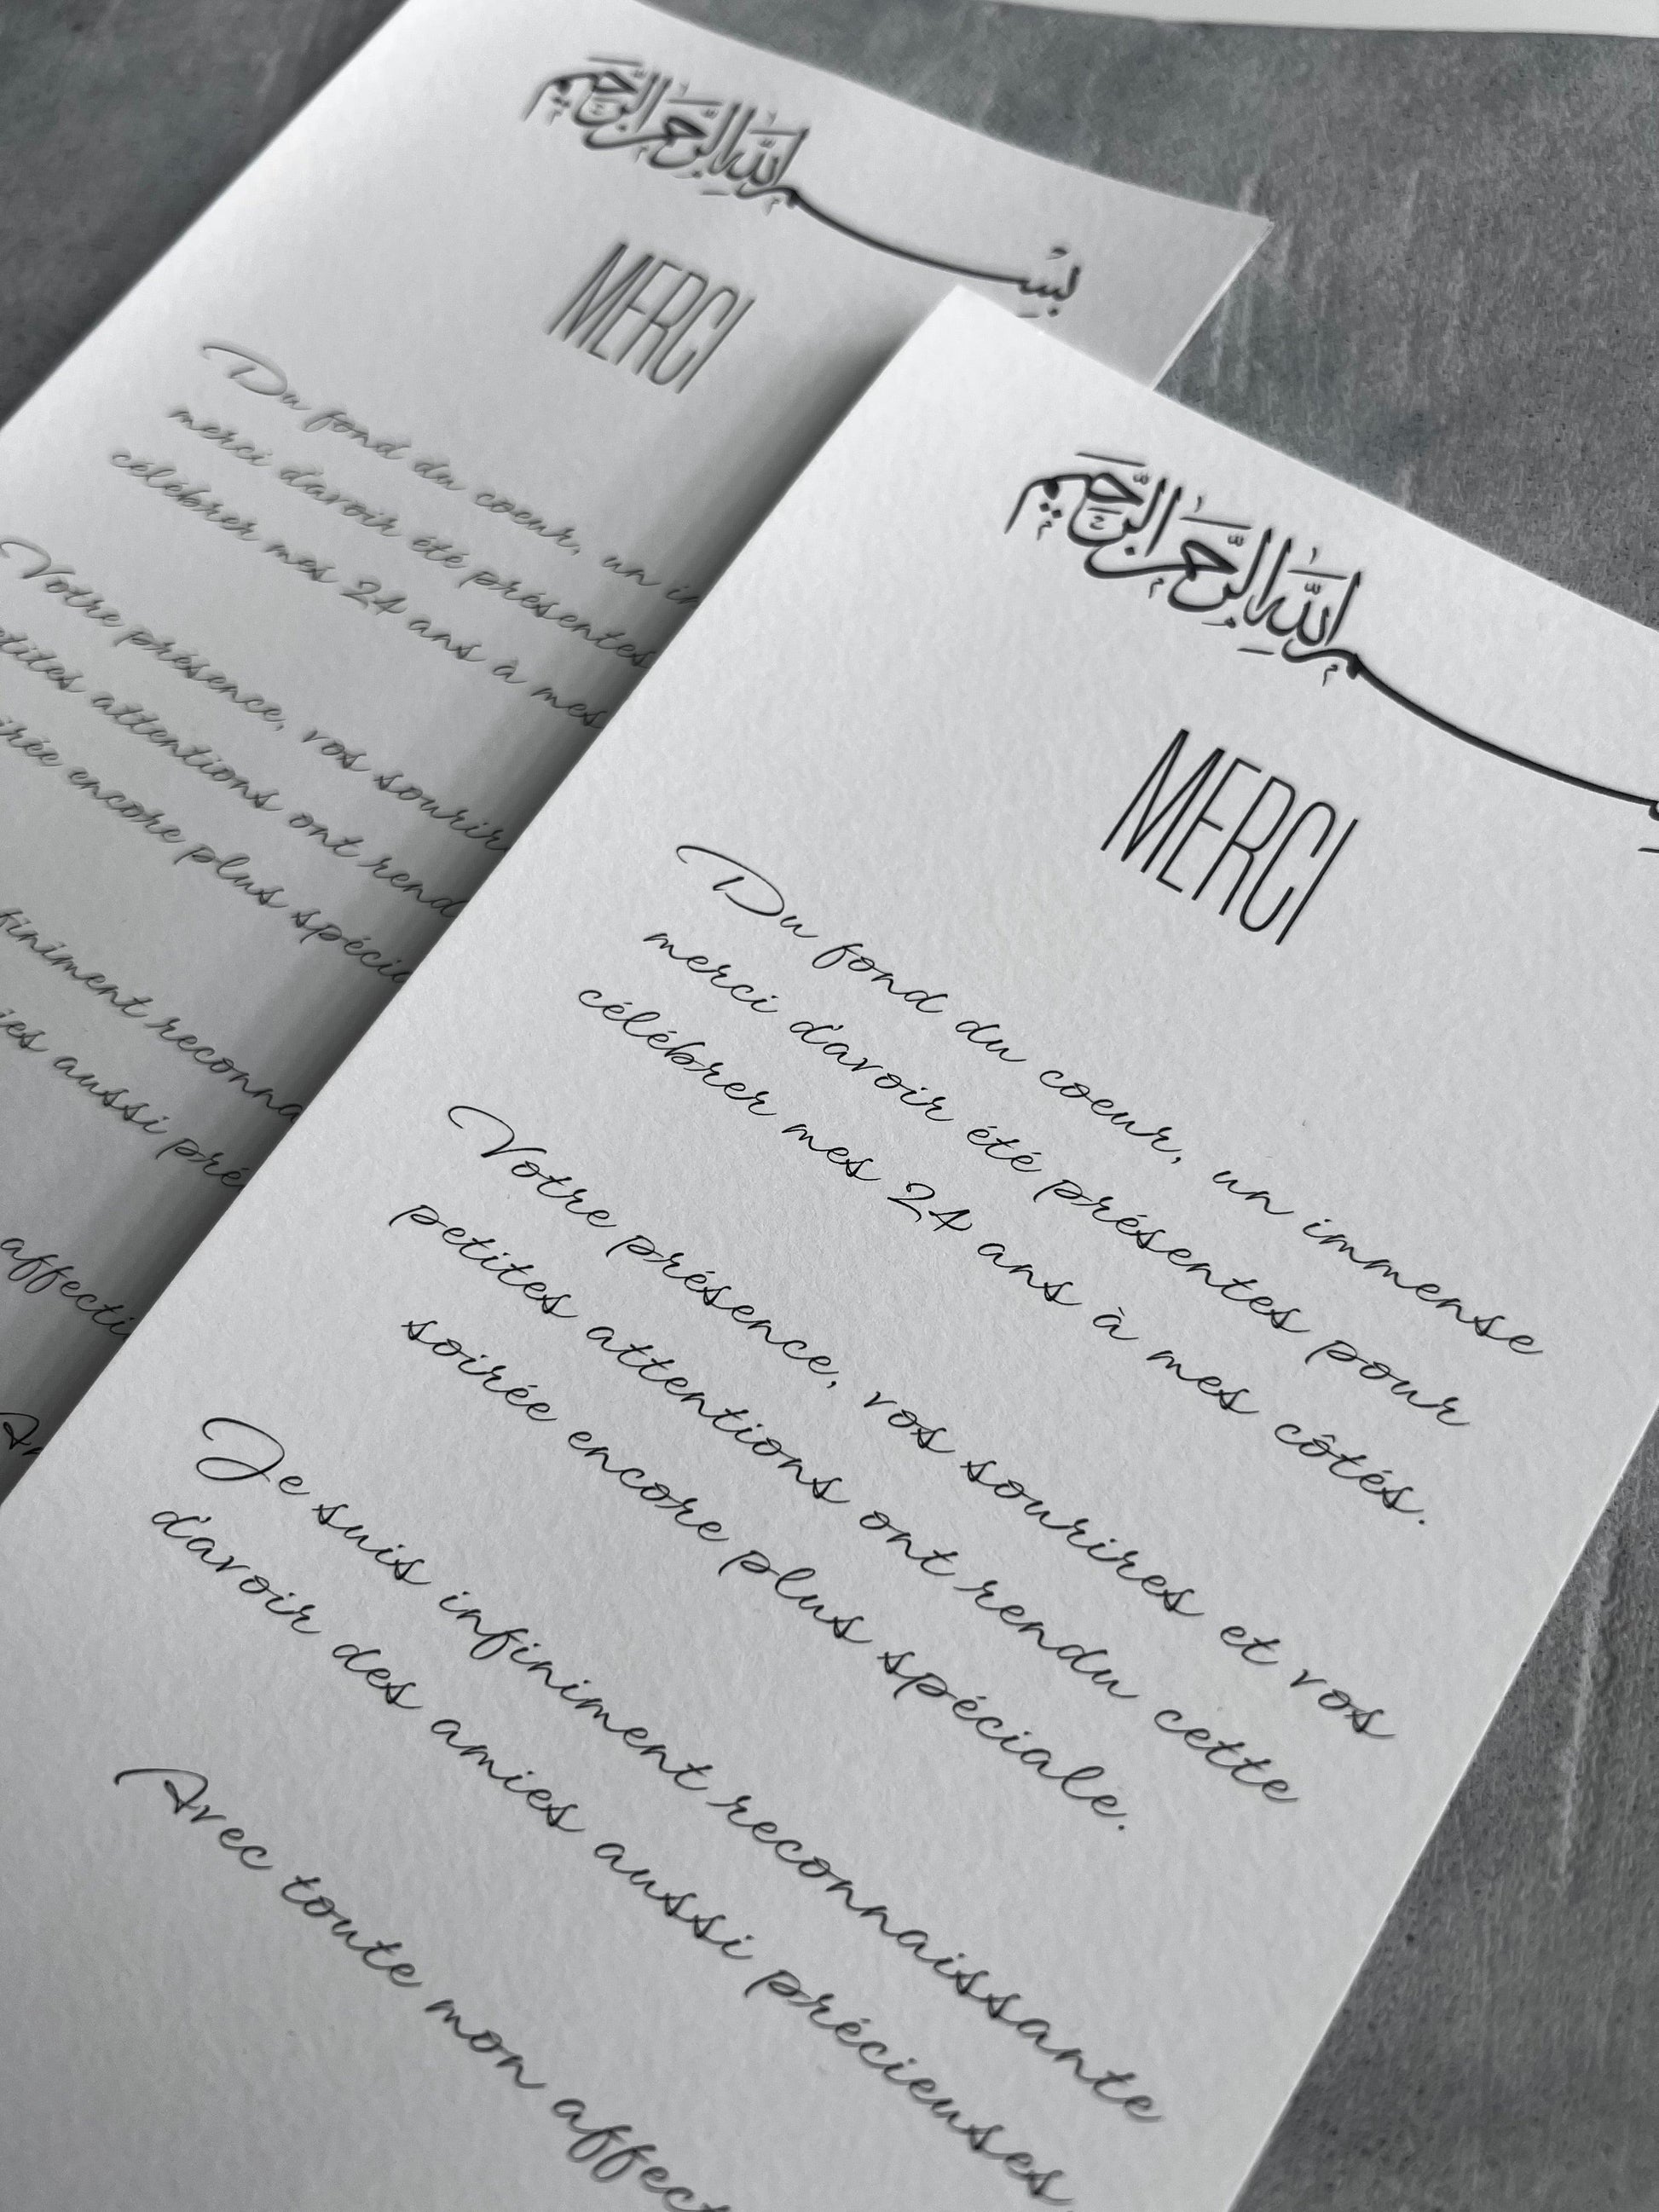 بِسْمِ اللَّهِ الرَّحْمَٰنِ الرَّحِيمِ
MERCI
Du fond du coeur, un
merci d'avoir été présentes
célébrer mes 24 ans à mes
Votre présence, vos
attentions ont
encore plus
aussi
بِسْمِ اللَّهِ الرَّحْمَٰنِ الرَّحِيمِ
MERCI
Du fond du coeur, un immense
merci d'avoir été présentes pour
célébrer mes 24 ans à mes côtés.
Votre présence, vos sourires et vos
petites attentions ont rendu cette
soirée encore plus spéciale.
Je suis infiniment reconnaissante
d'avoir des amies aussi précieuses
Avec toute mon